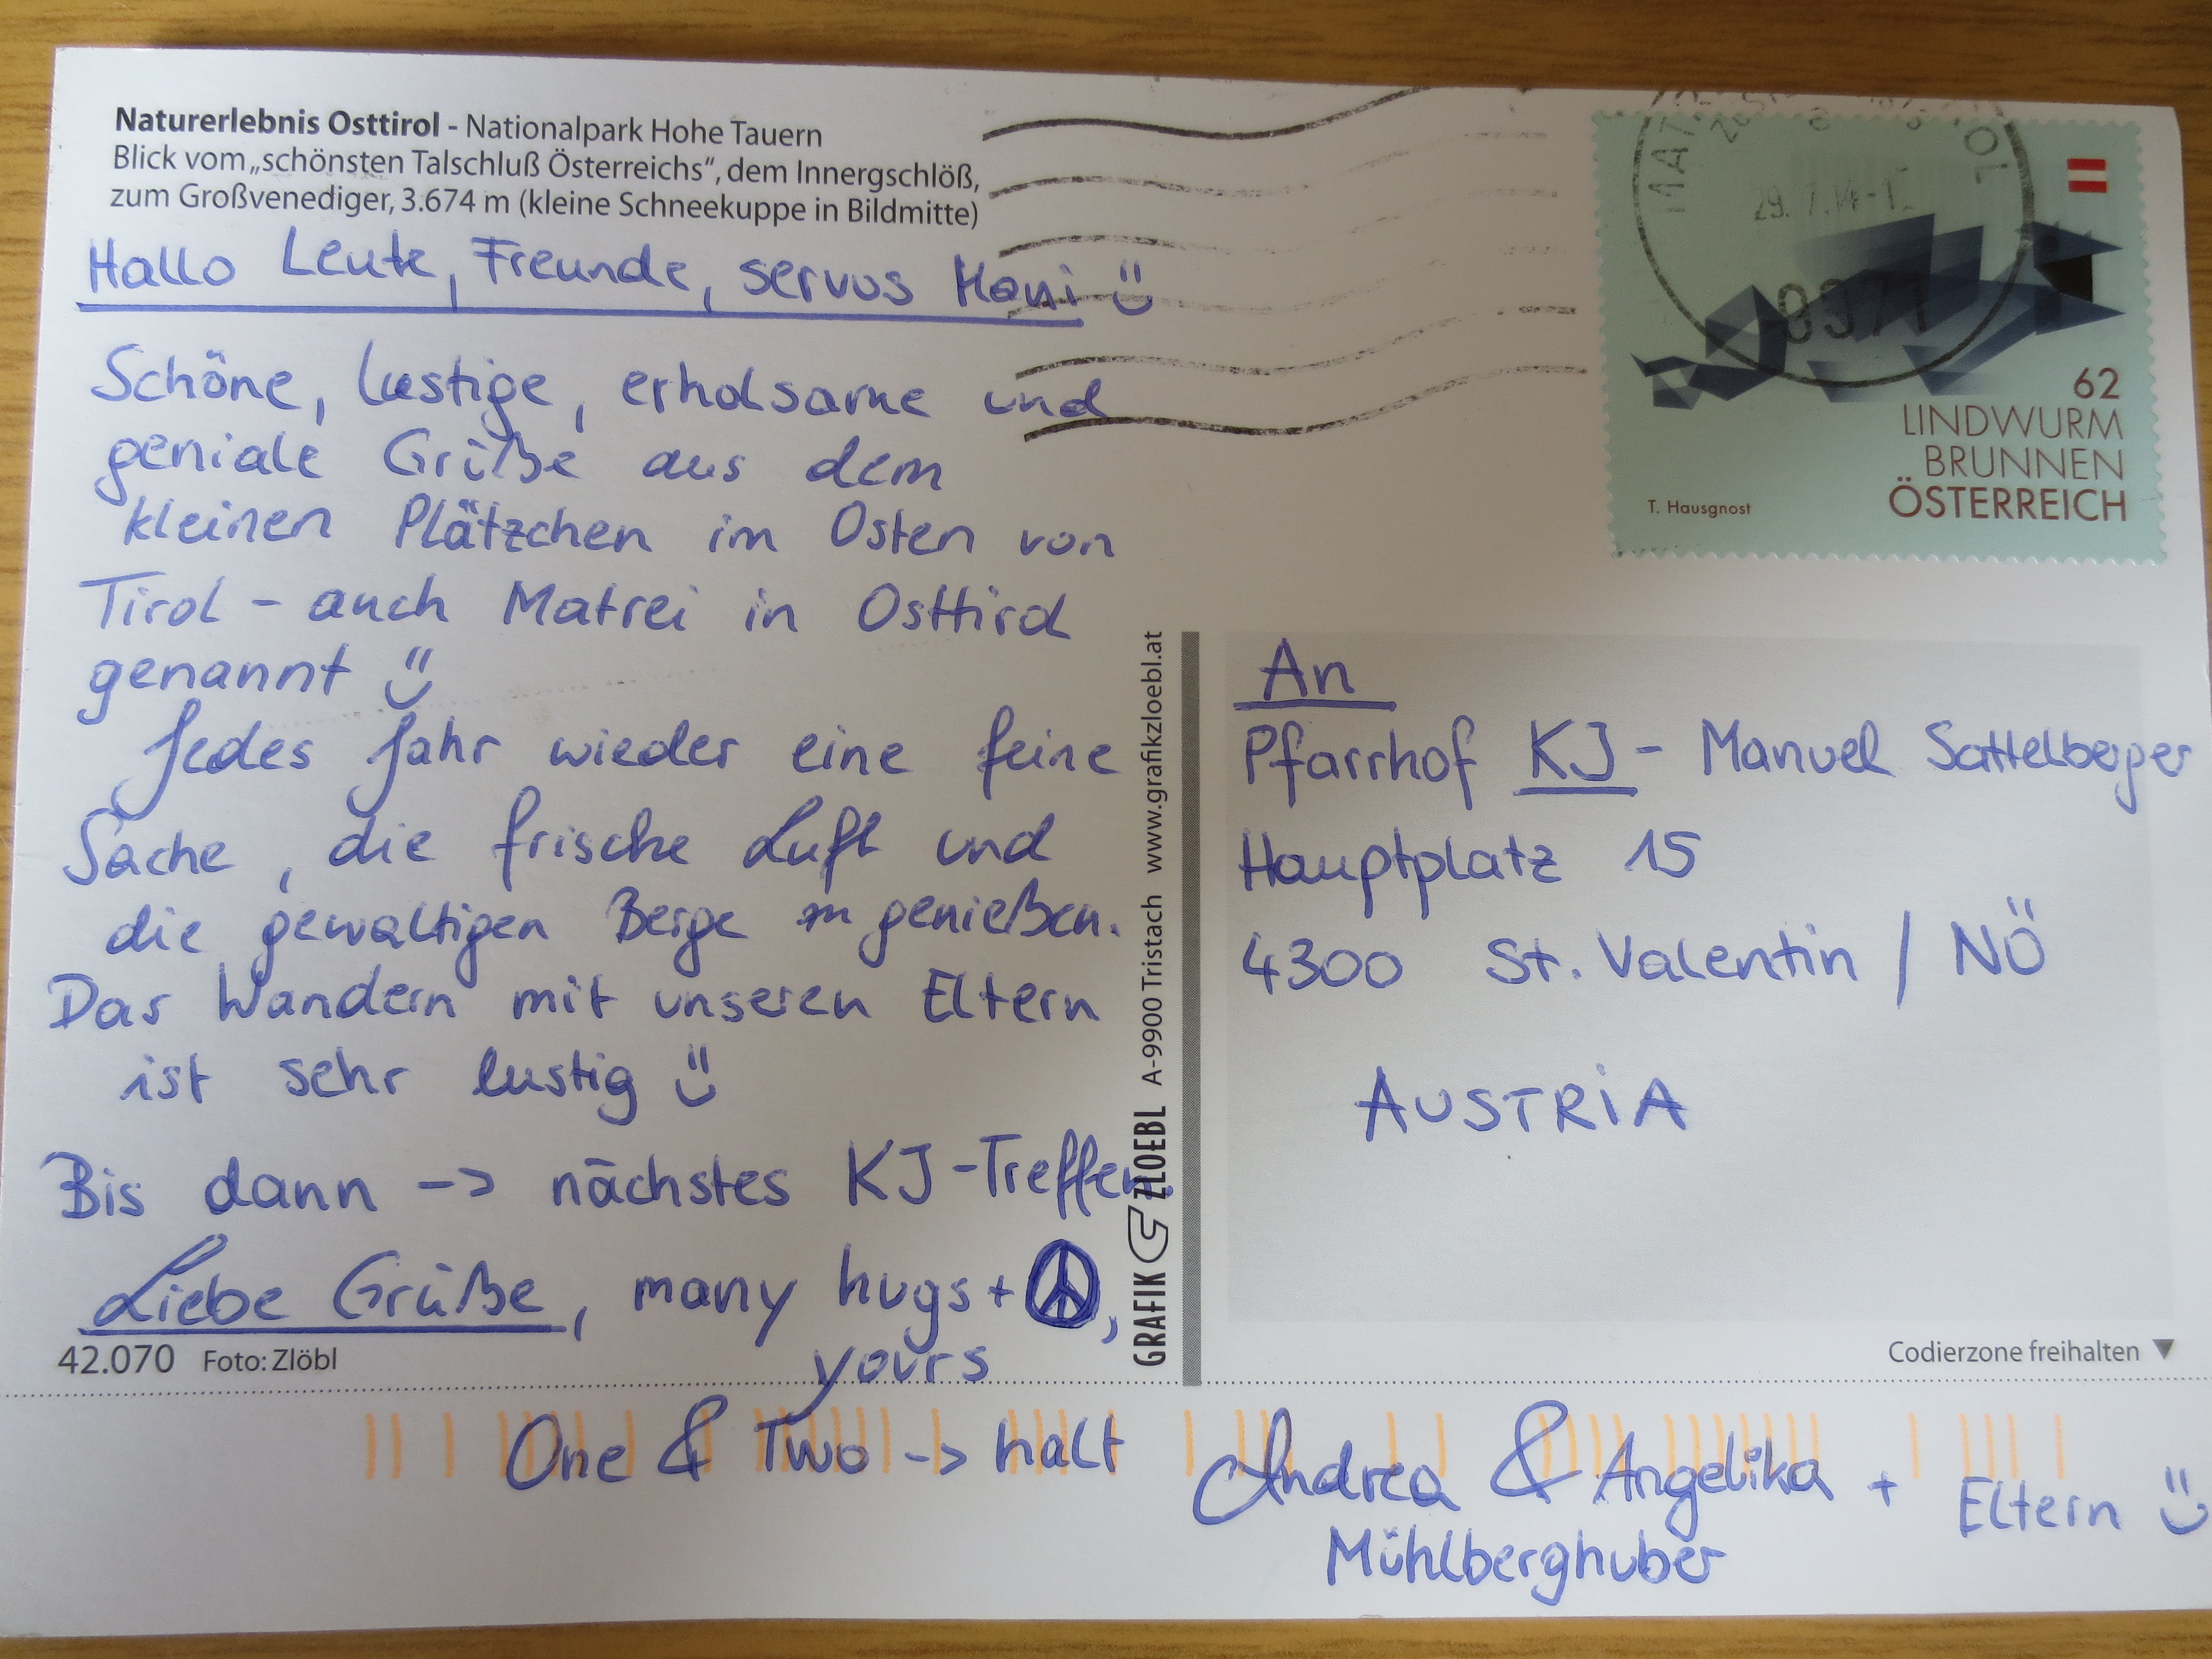 Naturerlebnis Osttirol - Nationalpark Hohe Tauern
Blick vom „schönsten Talschluß Österreichs“, dem Innergschlöß,
zum Großvenediger, 3.674 m (kleine Schneekuppe in Bildmitte)
Hallo Leute, Freunde, servus Mani
Schöne, lustige, erholsame und
geniale Grüße aus dem
kleinen Plätzchen im Osten von
Tirol - auch Matrei in Osttirol
genannt
Jedes Jahr wieder eine feine
Sache, die frische Luft und
die gewaltigen Berge zu genießen.
Das Wandern mit unseren Eltern
ist sehr lustig
Bis dann -> nächstes KJ-Treffen.
Liebe Grüße, many hugs + ☮,
yours
One & Two -> halt Andrea & Angelika + Eltern
Mühlberghuber
42.070 Foto: Zlöbl
GRAFIK ZLOEBL A-9900 Tristach www.grafikzloebl.at
29. 7.14
62
LINDWURM
BRUNNEN
ÖSTERREICH
T. Hausgnost
An
Pfarrhof KJ - Manuel Sattelberger
Hauptplatz 15
4300 St. Valentin / NÖ
AUSTRIA
Codierzone freihalten ▼